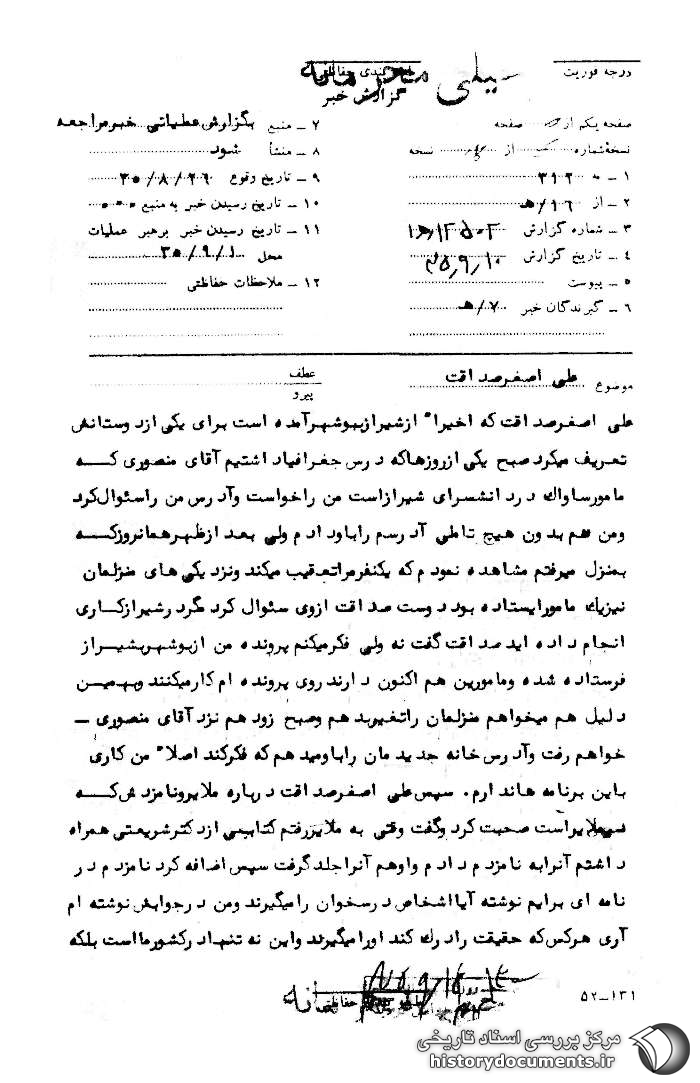 درجه فوریت
خیلی محرمانه
گزارش خبر
صفحه یکم از صفحه
نسخه شماره از نسخه
۱ ـ به ۳۱۲
۲ ـ از ۱۶/هـ
۳ ـ شماره گزارش
۴ ـ تاریخ گزارش ۳۵٫۹٫۱۰
۵ ـ پیوست
۶ ـ گیرندگان خبر ۷/هـ
۷ ـ منبع بگزارش عملیاتی خبر مراجعه
۸ ـ منشأ شود
۹ ـ تاریخ وقوع ۳۵/۸/۲۶
۱۰ ـ تاریخ رسیدن خبر به منبع
۱۱ ـ تاریخ رسیدن خبر برهبر عملیات
محل ۳۵/۹/۱
۱۲ ـ ملاحظات حفاظتی
موضوع علی اصغر صداقت
عطف
پیرو
علی اصغر صداقت که اخیراً از شیراز ببوشهر آمده است برای یکی از دوستانش
تعریف میکرد صبح یکی از روزها که درس جغرافیا داشتیم آقای منصوری کـــه
مامور ساواک در دانشسرای شیراز است من را خواست و آدرس من را سئوال کرد
ومن هم بدون هیچ تاملی آدرسم را باو دادم ولی بعد از ظهر همانروز کـــه
بمنزل میرفتم مشاهده نمودم که یکنفر مرا تعقیب میکند و نزدیکی های منزلمان
نیز یک مامور ایستاده بود دوست صداقت از وی سئوال کرد مگر در شیراز کاری
انجام داده اید صداقت گفت نه ولی فکر میکنم پرونده من از بوشهر بشیراز
فرستاده شده ومامورین هم اکنون دارند روی پرونده ام کار میکنند و بهمیـن
دلیل هم میخواهم منزلمان را تغییر بدهم وصبح زود هم نزد آقای منصوری ـ
خواهم رفت وآدرس خانه جدیدمان را باو میدهم که فکر کند اصلاً من کاری
باین برنامه ها ندارم. سپس علی اصغر صداقت درباره ملایر ونامزدش کـــه
ملایر است صحبت کرد وگفت وقتی به ملایر رفتم کتابی از دکتر شریعتی همراه
داشتم آنرا به نامزدم دادم واوهم آنرا جلد گرفت سپس اضافه کرد نامزدم در
نامه ای برایم نوشته آیا اشخاص درسخوان را میگیرند ومن در جوابش نوشته ام
آری هرکس که حقیقت را درک کند اورا میگیرند واین نه تنها در کشور ما است بلکه
۵۲ـ۱۳۱
مرکز بررسی اسناد تاریخی
historydocuments.ir